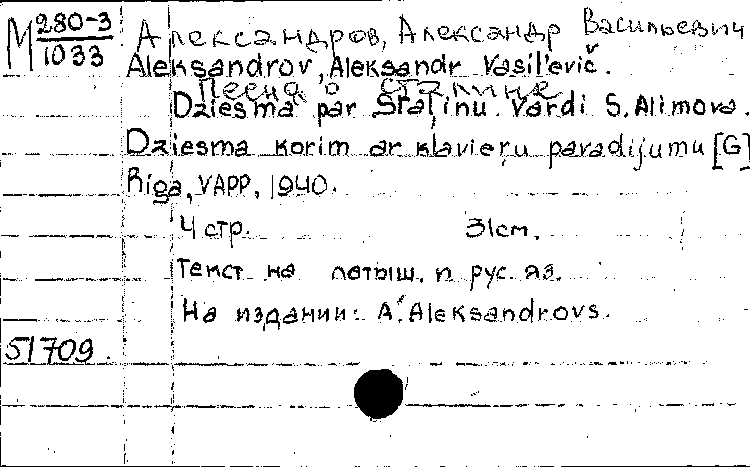 М 280-3
1033
Александров, Александр Васильевич
Aleksandrov, Aleksandr Vasil'evič.
Песня о Сталине
Dziesma par Staļinu. Vārdi S. Alimova.
Dziesma korim ar klavieŗu pavadijumu [G]
Rīga, VAPP, 1940.
4 стр. 31 см.
Текст на латыш. и рус. яз.
На издании: A. Aleksandrovs.
51709.